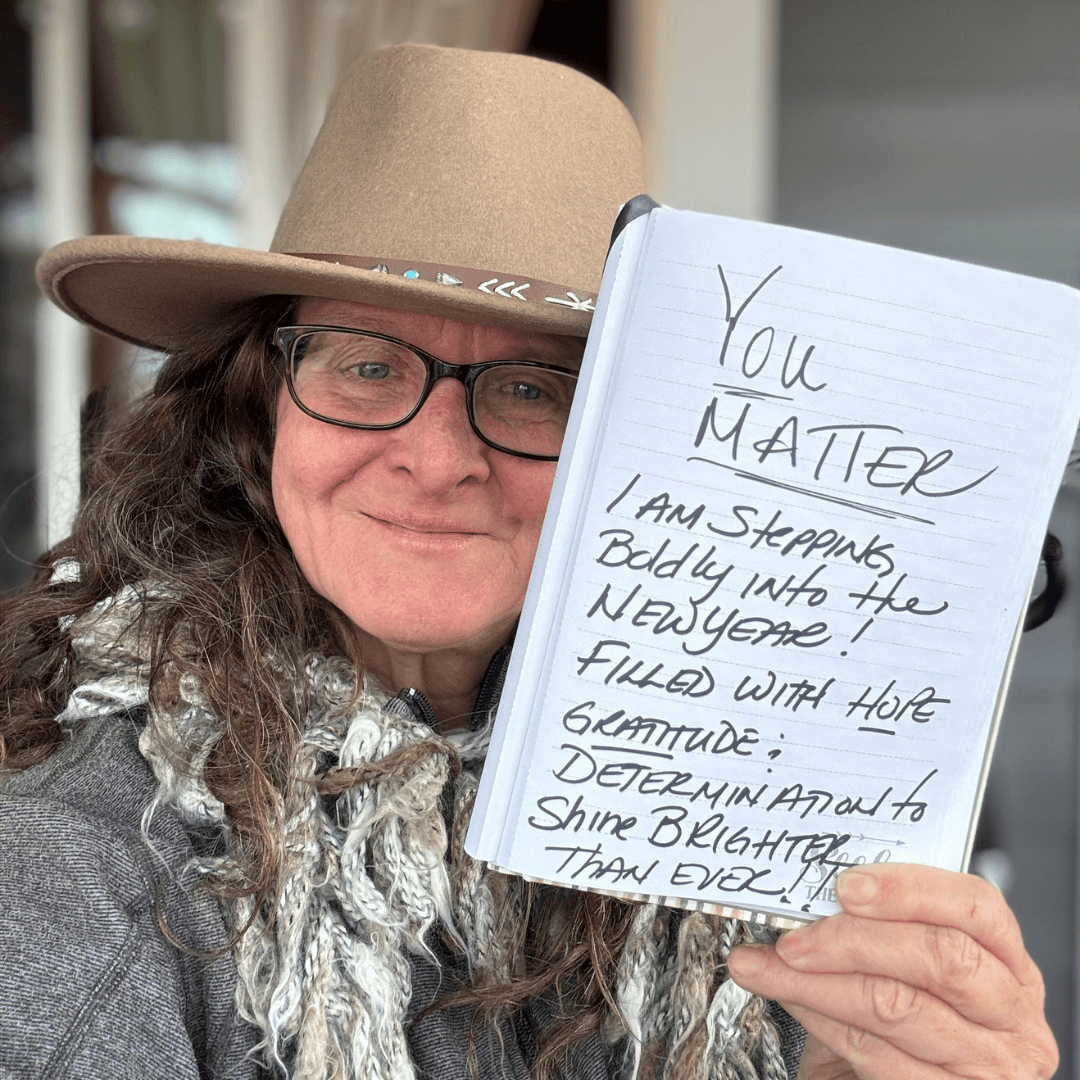 You
MATTER
I AM Stepping
Boldly into the
NEW YEAR!
FILLED WITH HOPE
GRATITUDE;
DETERMINATION to
Shine BRIGHTER
THAN EVER!!
THE